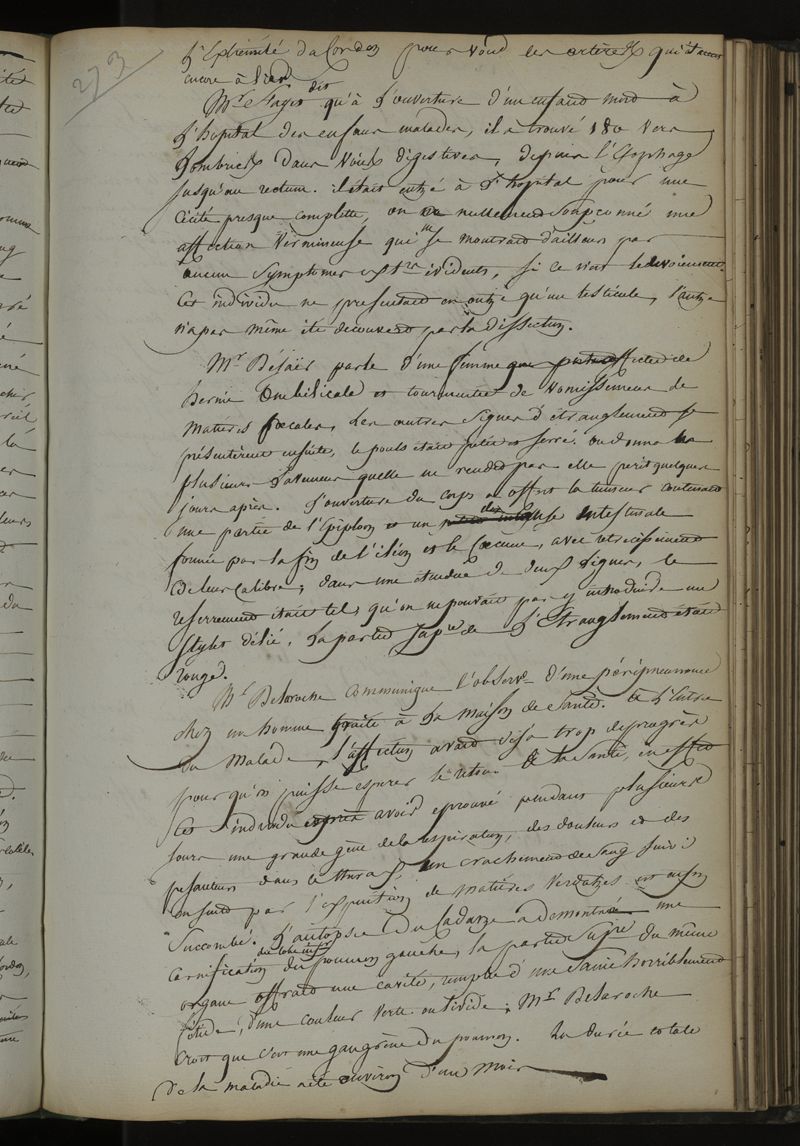 273
l'extrémité du Cordon pour voir les artères qui étaient
encore à l'état
Mr Laget dit qu'à l'ouverture d'un enfant mort à
l'hopital des enfans malades, il a trouvé 180 vers
Lombrics dans voies digestives, depuis l'Esophage
jusqu'au rectum. il était entré à l'hopital pour une
Cécité presque complette, on a nullement soupçonné une
affection Vermineuse qui ne se montrait d'ailleurs par
aucun Symptomes évidents, si ce n'est le devoiement.
Cet individu ne presentait en outre qu'un testicule, l'autre
n'a pas même été decouvert par la dissection.
Mr parle d'une femme affectée de
hernie Ombilicale et tourmentée de Vomissemens de
matières fœcales, les autres signes d'étranglement se
présentèrent ensuite, le pouls était petit et serré. on donna
plusieurs lavemens quelle ne rendit pas elle perit quelques
jours après. l'ouverture du corps a offert la tumeur contenant
une partie de l'Epiploon et un intestinale
formée par la fin de l'iléon et le Cœcum, avec retrecissement
de leur Calibre, dans une étendue de deux lignes, le
resserrement était tel, qu'on ne pouvait pas y introduire un
Stylet délié, la partie de l'Etranglement était
rouge.
Mr Delaroche Communique l'observ.on d'une péripneumonie
chez un homme traité à la Maison de Santé. à l'Entrée
du Malade, l'affection avait déja trop de progrès
pour qu'on puisse esperer le retour de la Santé, en effet
Cet individu après avoir eprouvé pendant plusieurs
jours une grande gêne de la respiration, des douleurs et des
pesanteurs dans le thorax, un crachement de sang suivi
ensuite par l'expuition de matières Verdatres est ainsi
Succombé. L'autopsie du Cadavre a demontrée une
Carnification du lobe infr du poumon gauche, la partie Supre du même
organe offrait une cavité, remplie d'une Sanie horriblement
fétide, d'une couleur verte ou livide, Mr Delaroche
Croit que c'est une gangrène du poumon. la durée totale
de la maladie a été environ d'un Mois